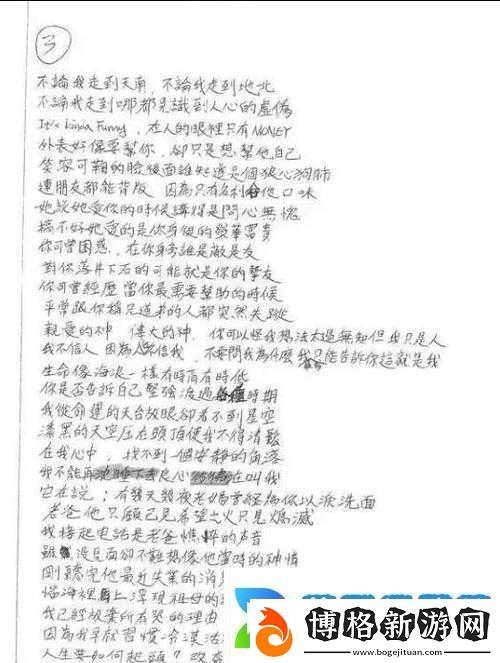 3
不論我走到天南，不論我走到地北
不論我走到哪都見識到人心的虛偽
It's kinda Funny，在人的眼裡只有MONEY
外表好像要幫你，卻只是想幫他自己
笑容可鞠的臉後面誰知道是個狼心狗肺
連朋友都能背叛 因為只有名利合他口味
她說她愛你的時候講得是問心無愧
搞不好她愛的是你身後的榮華富貴
你可曾困惑，在你身旁誰是敵是友
對你落井下石的可能就是你的摯友
你可曾經歷當你最重要幫助的時候
平常跟你稱兄道弟的人都突然失蹤
親愛的神 偉大的神 你可以怪我想法太過無知但我只是人
我不信人 因為人不信我，不要問我為什麼我只能告訴你這就是我
生命像海浪一樣有時高有時低
你是否告訴自己堅強渡過 時期
我從命運的天台放眼卻看不到星空
漆黑的天空压在頭頂使我不得清鬆
在我心中，找不到一個安靜的角落
我不能再沈睡下去良心 在叫我
它在說；有幾天幾夜老媽曾經為你以淚洗面
老爸他只願已見希望之火只見熄滅
我接起電話是老爸憔悴的声音
雖 沒見面卻不難想像他當時的神情
剛聽完他最近失業的消
腦海裡 上浮現祖母的
我已經放棄所有哭的理由
因為我早就習慣冷漠
人生要如何起頭？改
博格新游网
www.bogejituan.com